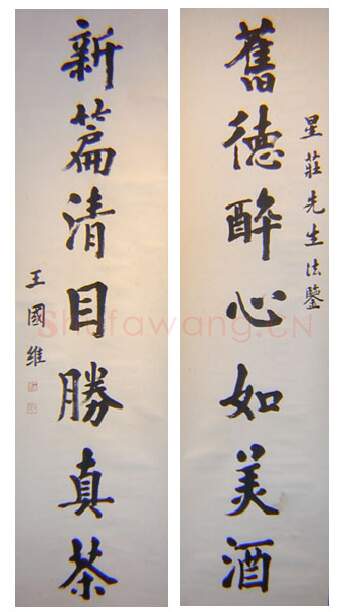 星莊先生法鑒
舊德醉心如美酒
新篇清目勝真茶
王國維
Shufawang.CN